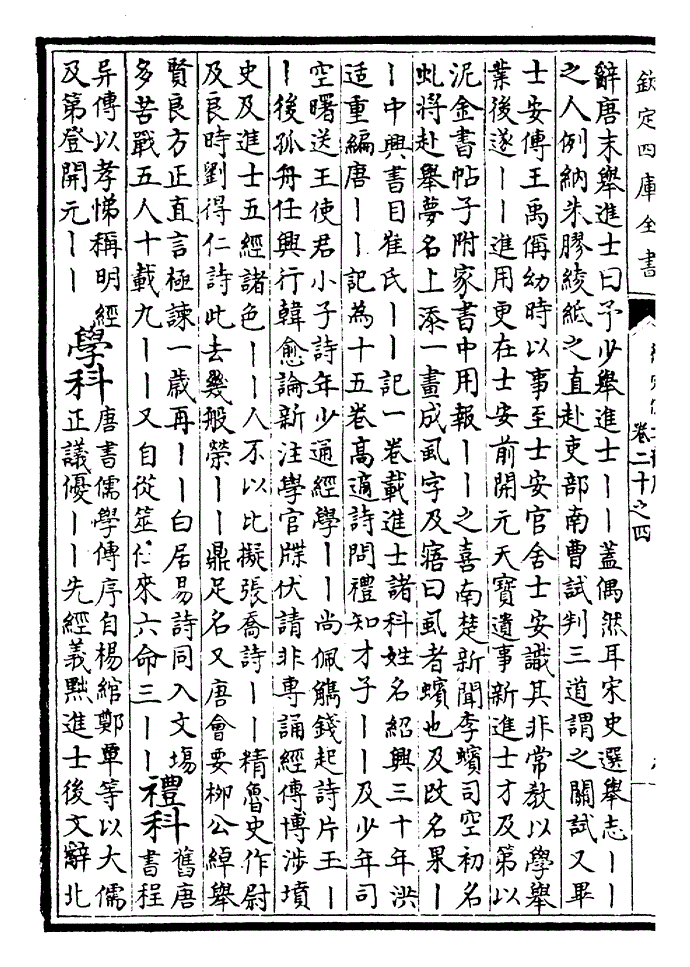 欽定四庫全書
卷二十之四
辭唐末舉進士曰予少舉進士丨丨蓋偶然耳宋史選舉志丨丨
之人例納朱膠綾紙之直赴吏部南曹試判三道謂之關試又畢
士安傳王禹偁幼時以事至士安官舍士安識其非常教以學舉
業後遂丨丨進用更在士安前開元天寶遺事新進士才及第以
泥金書帖子附家書中用報丨丨之喜南楚新聞李蠙司空初名
虬將赴舉夢名上添一畫成虱字及寤曰虱者蠙也及改名果丨
丨中興書目崔氏丨丨記一卷載進士諸科姓名紹興三十年洪
适重編唐丨丨記為十五卷高適詩問禮知才子丨丨及少年司
空曙送王使君小子詩年少通經學丨丨尚佩觿錢起詩片玉丨
丨後孤舟任興行韓愈論新注學官牒伏請非專誦經傳博涉墳
史及進士五經諸色丨丨人不以比擬張喬詩丨丨精魯史作尉
及良時劉得仁詩此去幾般榮丨丨鼎足名又唐會要柳公綽舉
賢良方正直言極諫一歲再丨丨白居易詩同入文塲
多苦戰五人十載九丨丨又自從筮仕來六命三丨丨
禮科
舊唐
書程
异傳以孝悌稱明經
及第登開元丨丨
學科
唐書儒學傳序自楊綰鄭覃等以大儒
正議優丨丨先經義黜進士後文辭北